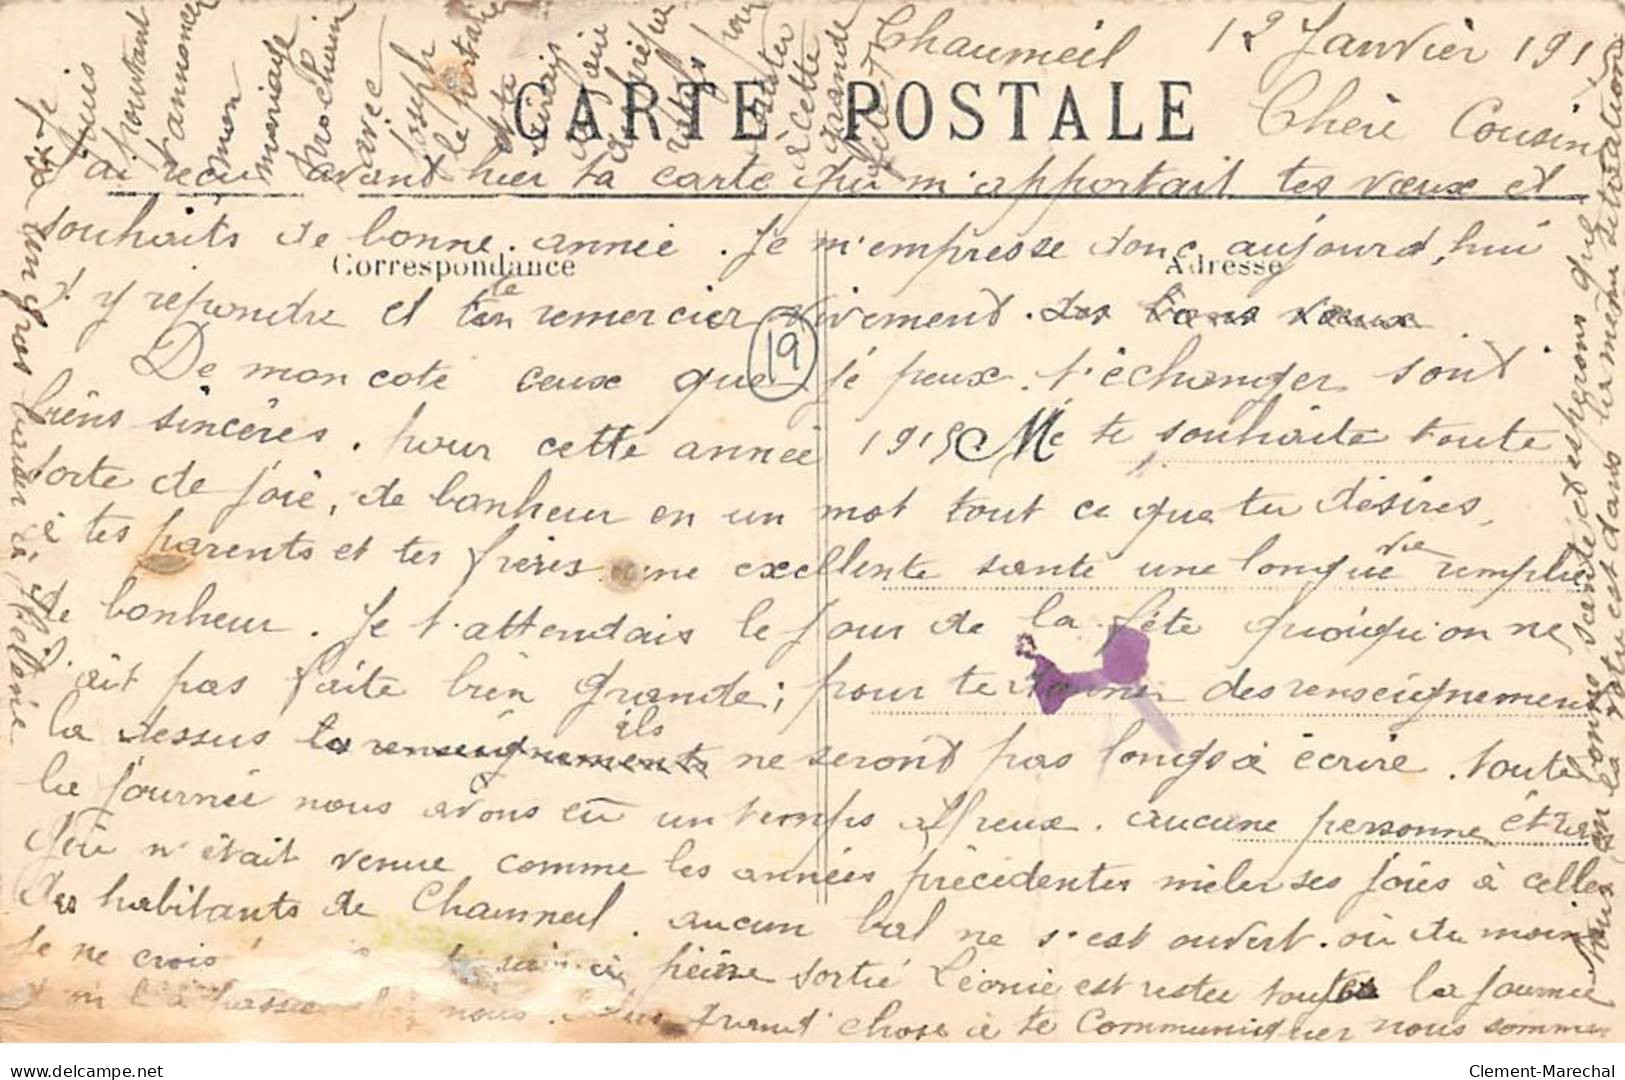 Chaumeil 12 Janvier 191
CARTE POSTALE
Chère Cousine
J'ai reçu avant hier ta carte qui m'apportait tes vœux et
souhaits de bonne année. Je m'empresse donc aujourd'hui
Correspondance
Adresse
d'y repondre et te remercier vivement. des bons vœux
De mon coté ceux que je peux t'échanger sont
19
biens sincères. pour cette année 1915 Me te souhaite toute
sorte de joie, de bonheur en un mot tout ce que tu désires,
à tes parents et tes frères une excellente santé une longue vie remplie
de bonheur. Je t'attendais le jour de la fête quoiqu'on ne
l'ait pas faite bien grande; pour te donner des renseignements
la dessus les renseignements ils ne seront pas longs à écrire. toute
la journée nous avons eu un temps affreux. aucune personne étran
gère n'était venue comme les années précédentes mêler ses joies à celles
des habitants de Chaumeil. aucun bal ne s'est ouvert. ou du moins
Je ne crois peine sortie Léonie est restée toute la journée
nous. quand chose à te communiquer nous sommes
tous en bonne santé et espérons que
la votre est dans la même situation
Je
puis
pourtant
t'annoncer
mon
mariage
prochain
avec
Joseph
le portaire
cette
grande
fête
un gros baiser à Helene
Clement-Marechal